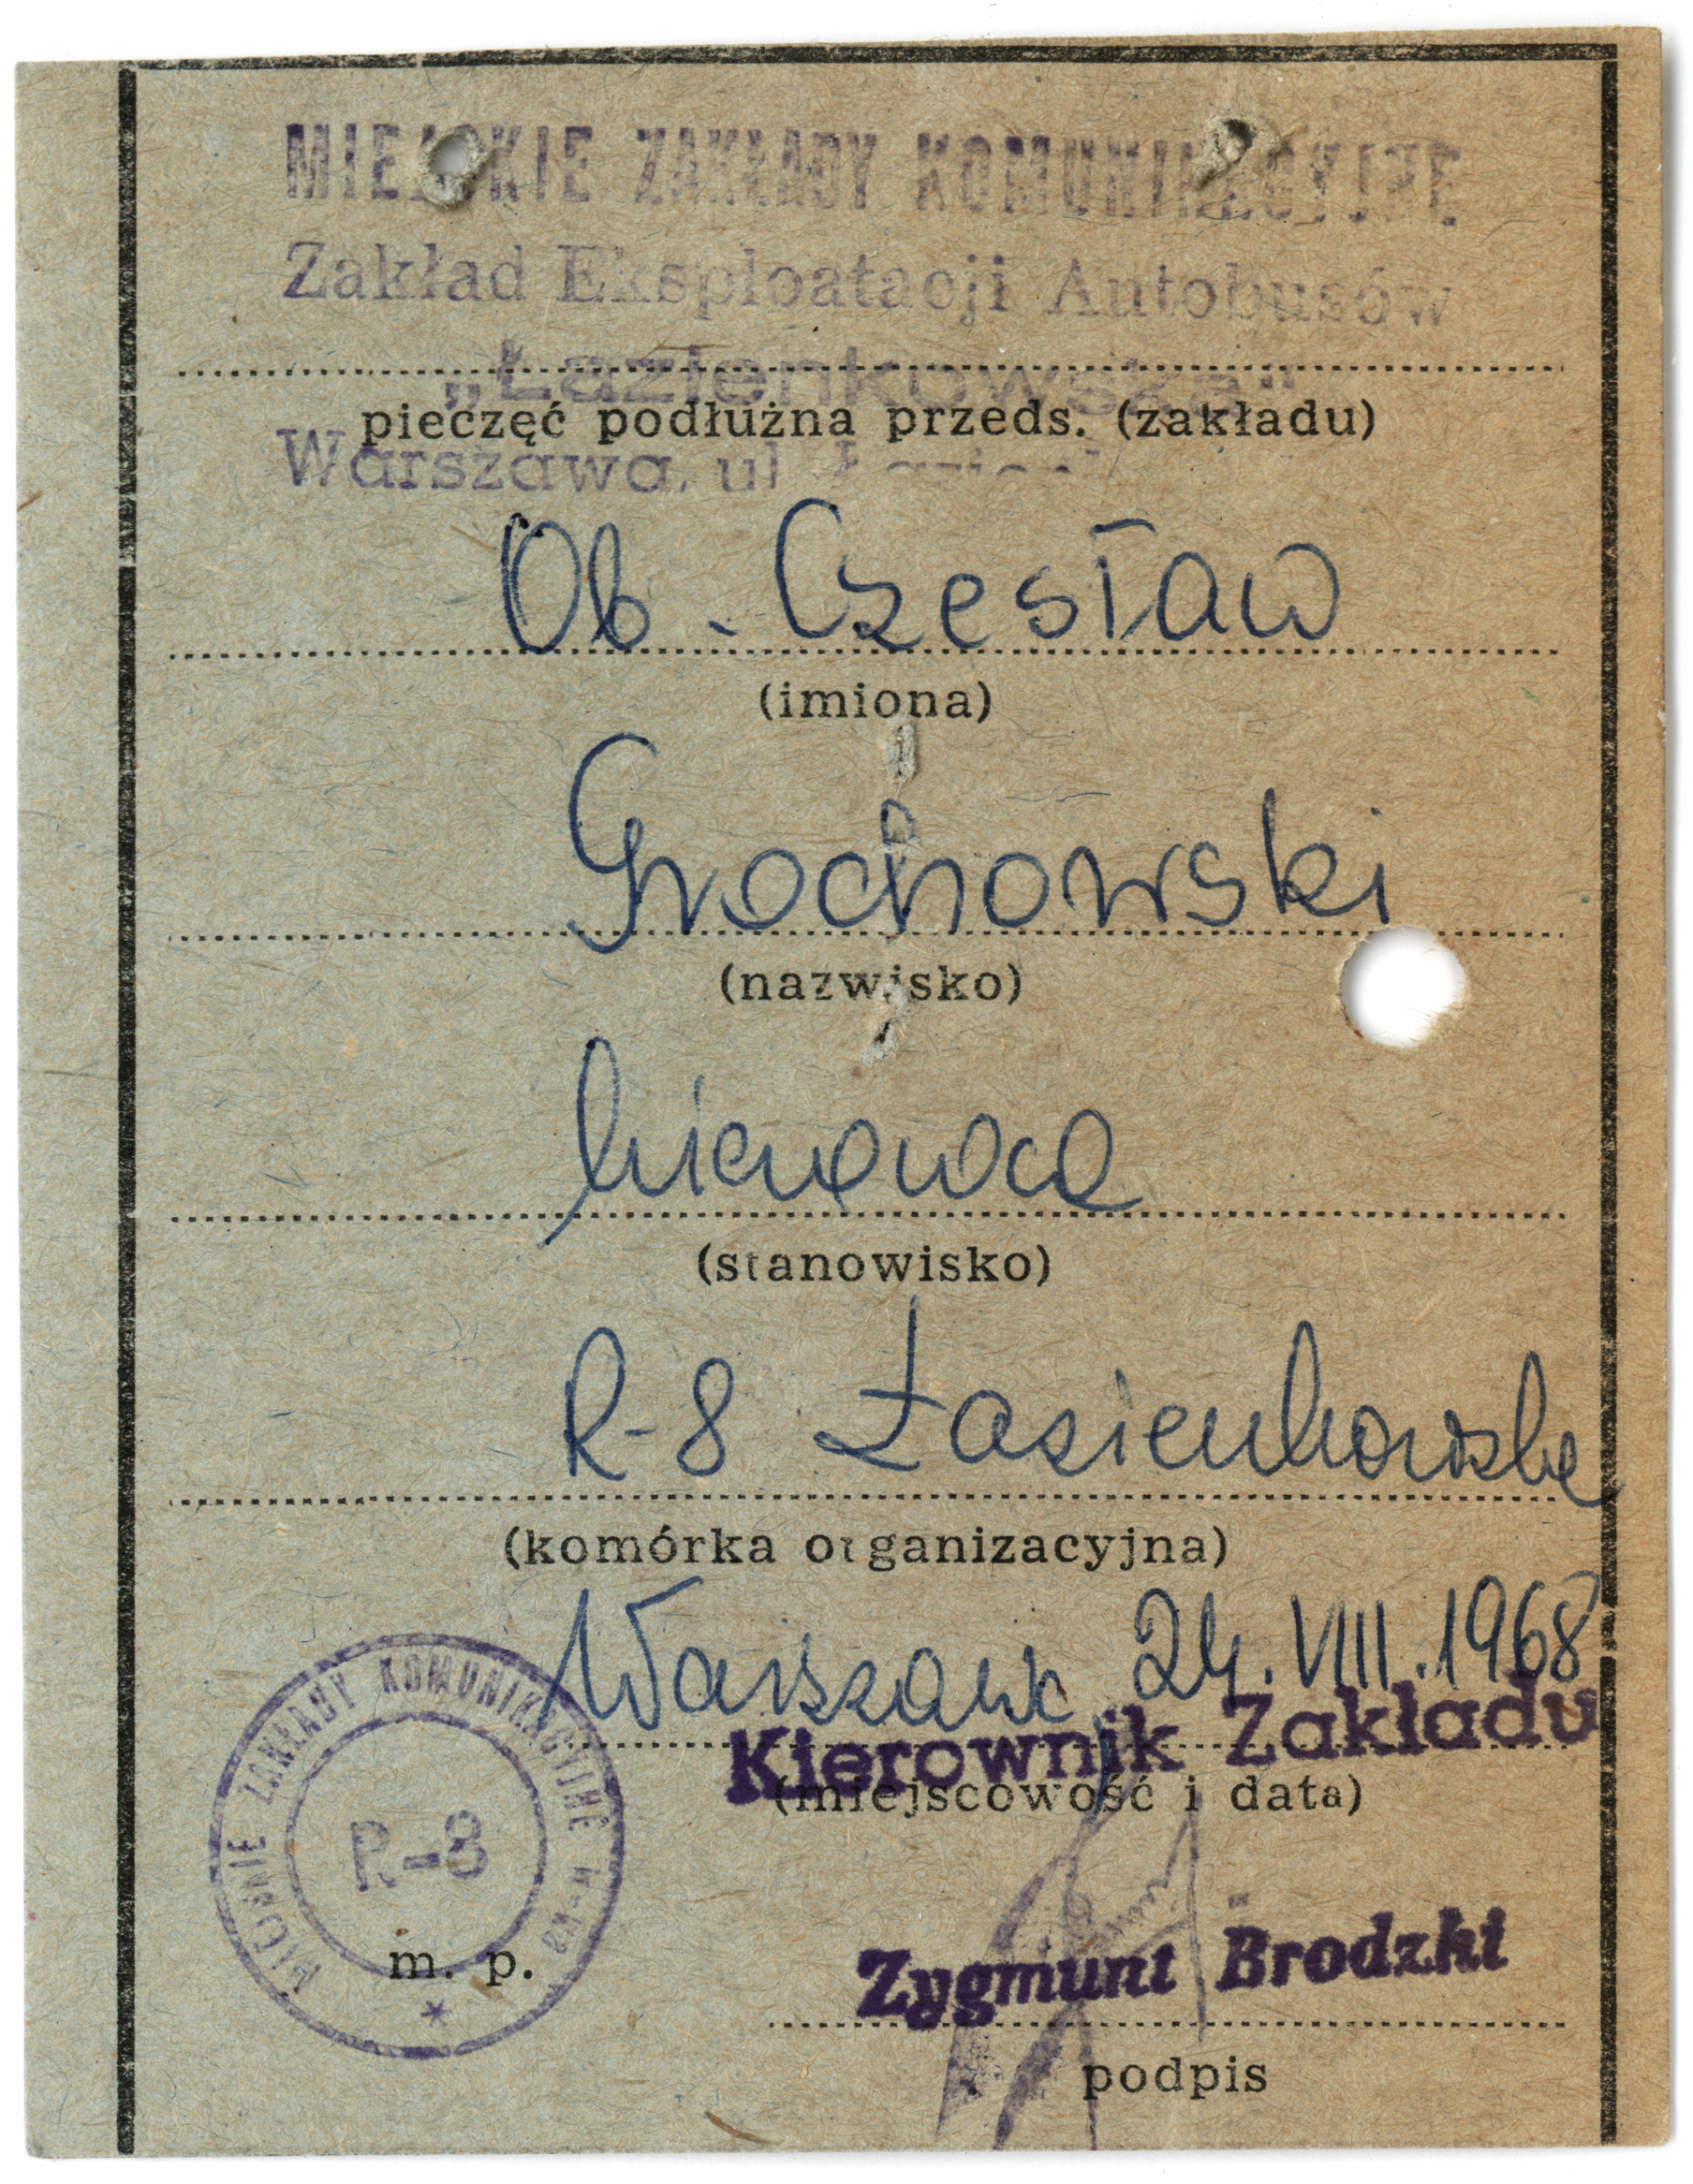 MIEJSKIE ZAKŁADY KOMUNIKACYJNE
Zakład Eksploatacji Autobusów
„Łazienkowska"
pieczęć podłużna przeds. (zakładu)
Warszawa, ul
Ob. Czesław
(imiona)
Grochowski
(nazwisko)
kierowca
(stanowisko)
R-8 Łazienkowska
(komórka organizacyjna)
Warszawa, 24.VIII.1968
Kierownik Zakładu
(miejscowość i data)
MIEJSKIE ZAKŁADY KOMUNIKACYJNE W-WA
R-8
m. p.
Zygmunt Brodzki
podpis